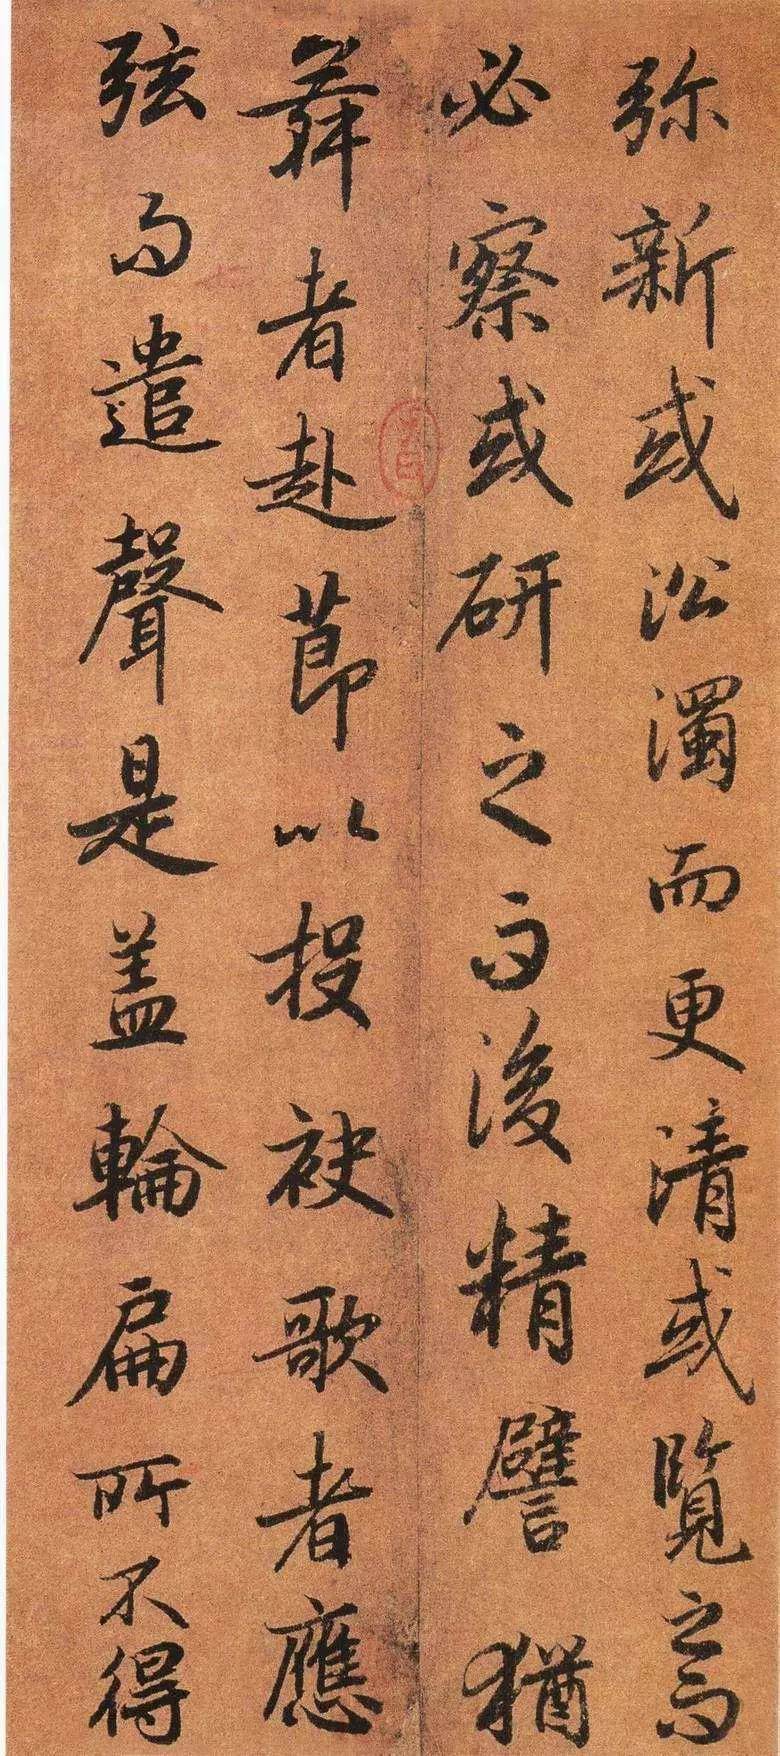 弥新或沿濁而更清或覽之而
必察或研之而後精譬猶
舞者赴節以投袂歌者應
弦而遣聲是盖輪扁所不得